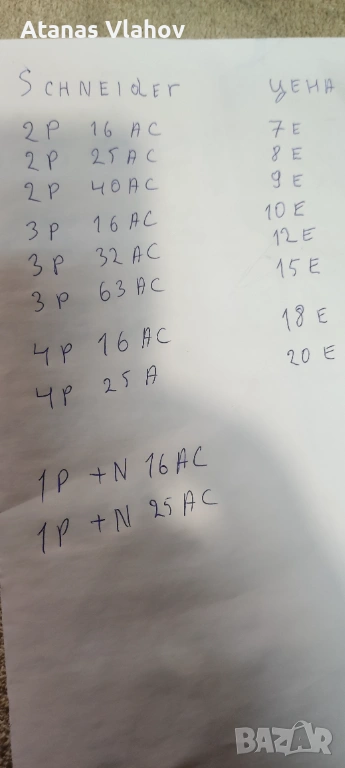 Atanas Vlahov
SCHNEIdER ЦЕНА
2P 16 AC 7 E
2P 25 AC 8 E
2P 40 AC 9 E
3P 16 AC 10 E
3P 32 AC 12 E
3P 63 AC 15 E
4P 16 AC 18 E
4P 25 A 20 E
1P +N 16 AC
1P +N 25 AC
BAZAR